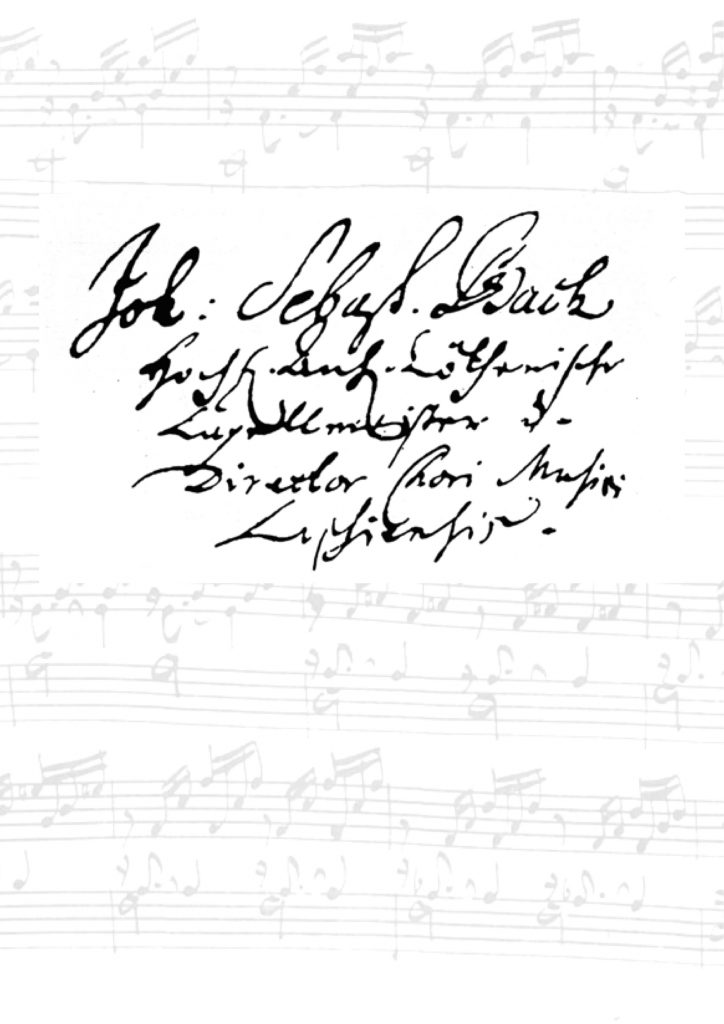 Joh: Sebast. Bach
Hochf. Anh. Cöthenischer
Capellmeister u.
Director Chori Musici
Lipsiensis.